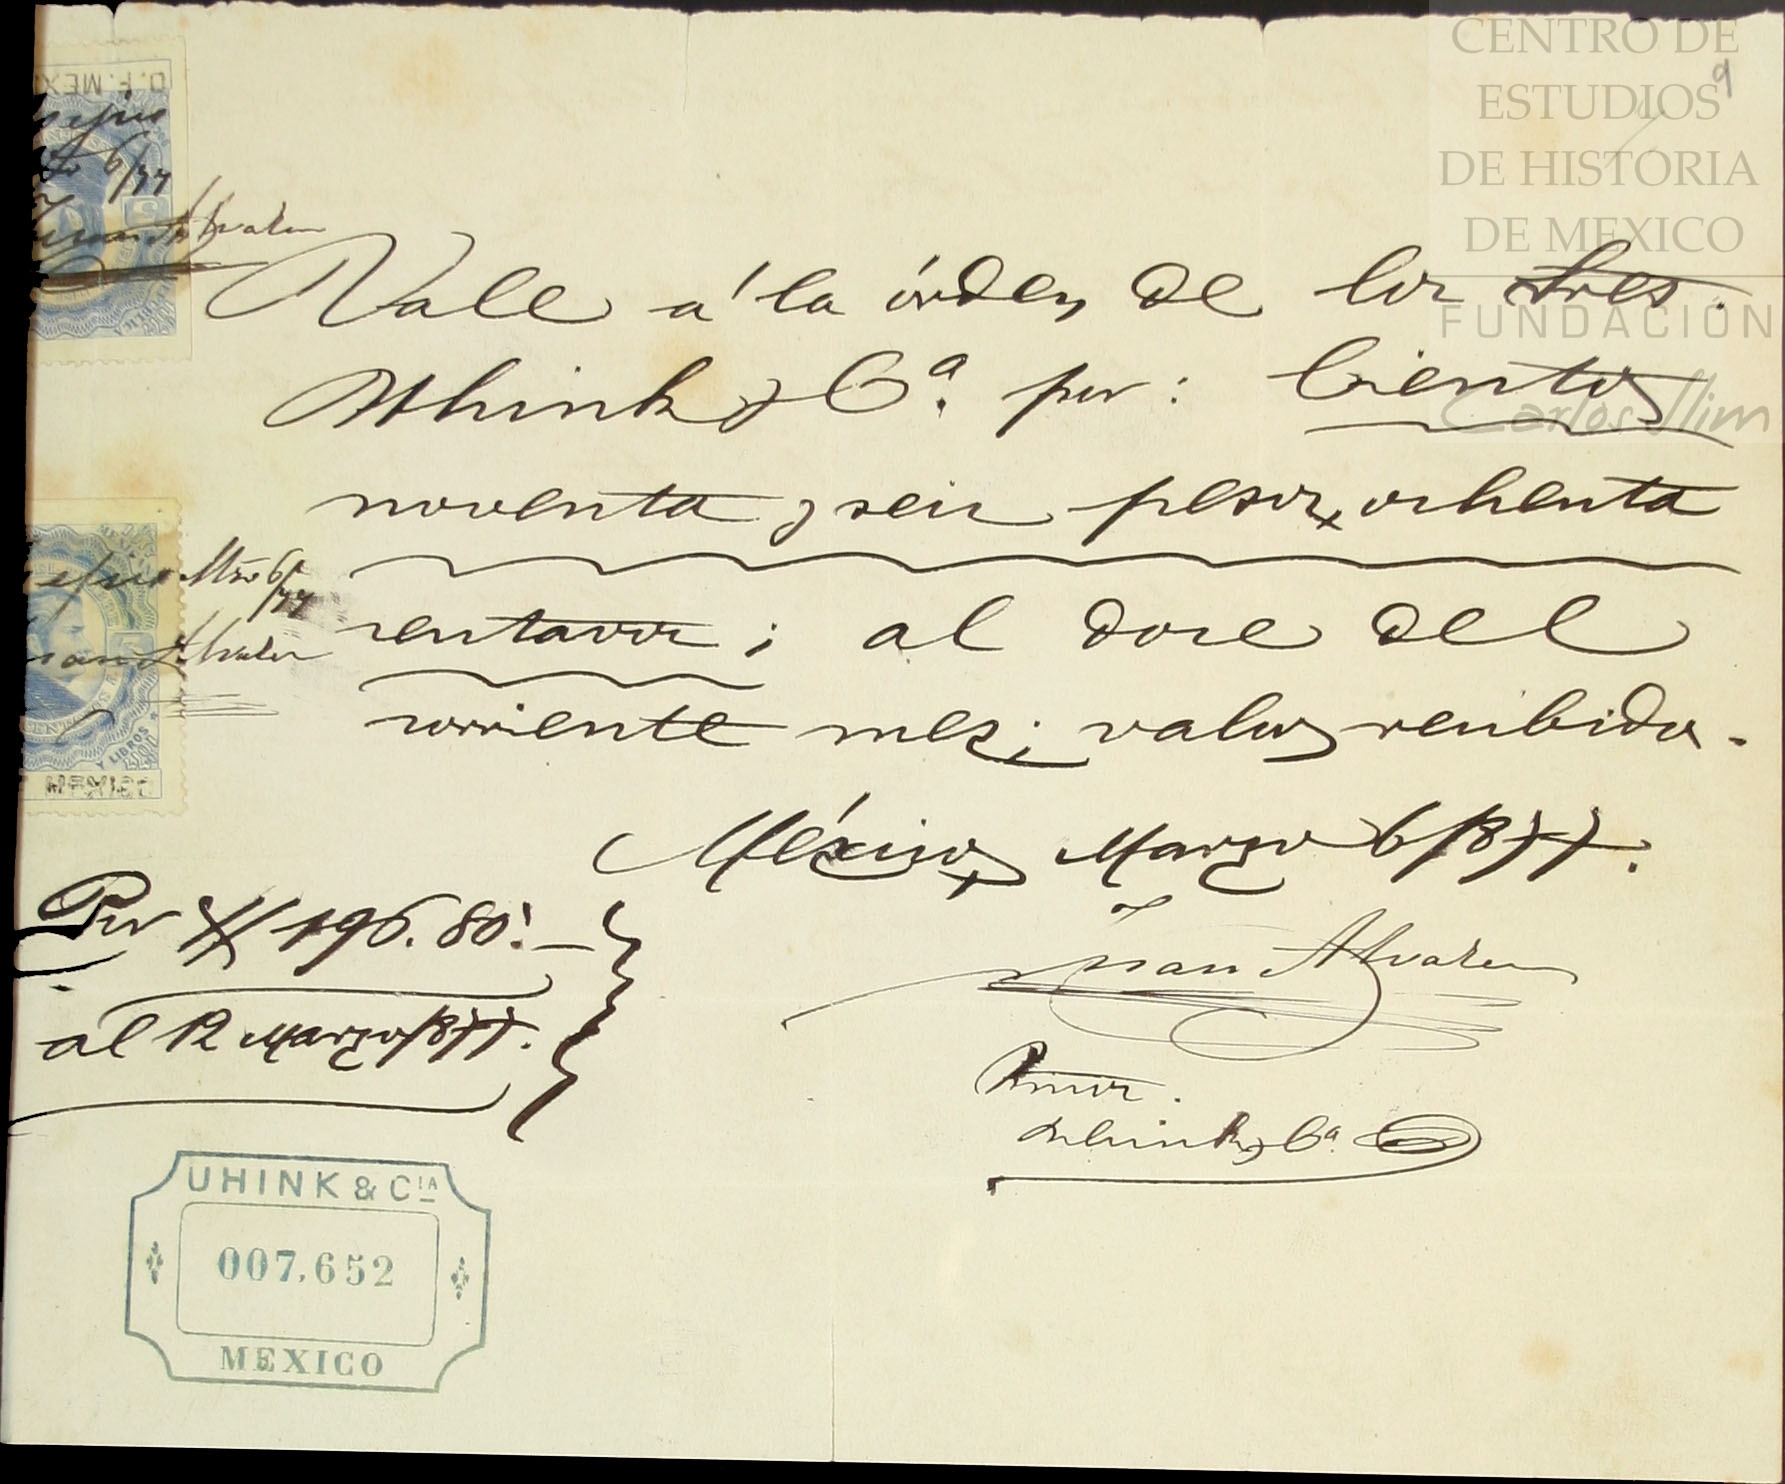 CENTRO DE
ESTUDIOS
DE HISTORIA
DE MEXICO
FUNDACIÓN
Carlos Slim
9
D.F. MEX
6/77
Juan Alvarez
Vale á la órden de los Sres.
Uhink y Cª. por: Ciento
noventa y seis pesos, ochenta
centavos; al doce del
corriente mes; valor recibido.
México, Marzo 6/1877.
Mzo 6/77
Juan Alvarez
Y LIBROS
MEXICO
Por $ 196.80.
al 12 Marzo/877.
Juan Alvarez
Somos.
Uhink y Cª
UHINK & CIA
007.652
MEXICO